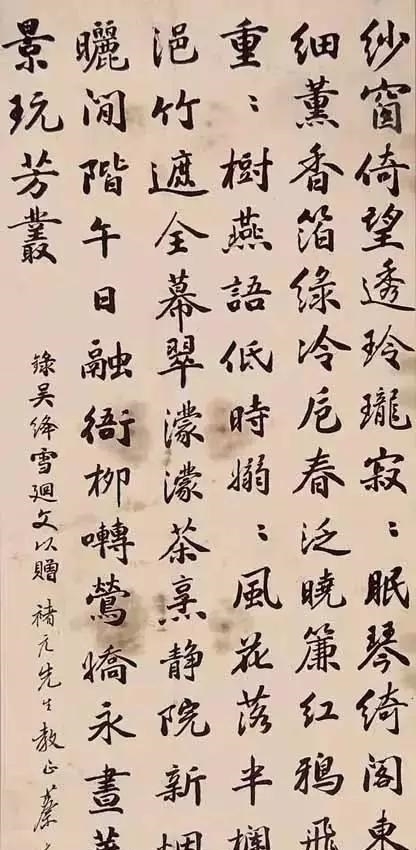 紗窗倚望透玲瓏寂〻眠琴綺閣東
細薰香箔綠冷卮春泛曉簾紅鴉飛
重〻樹燕語低時嫋〻風花落半欄
浥竹遮全幕翠濛濛茶烹静院新
曬閒階午日融衙柳囀鶯嬌永晝
景玩芳叢
錄吴绛雪迴文以贈 先生教正 蔡